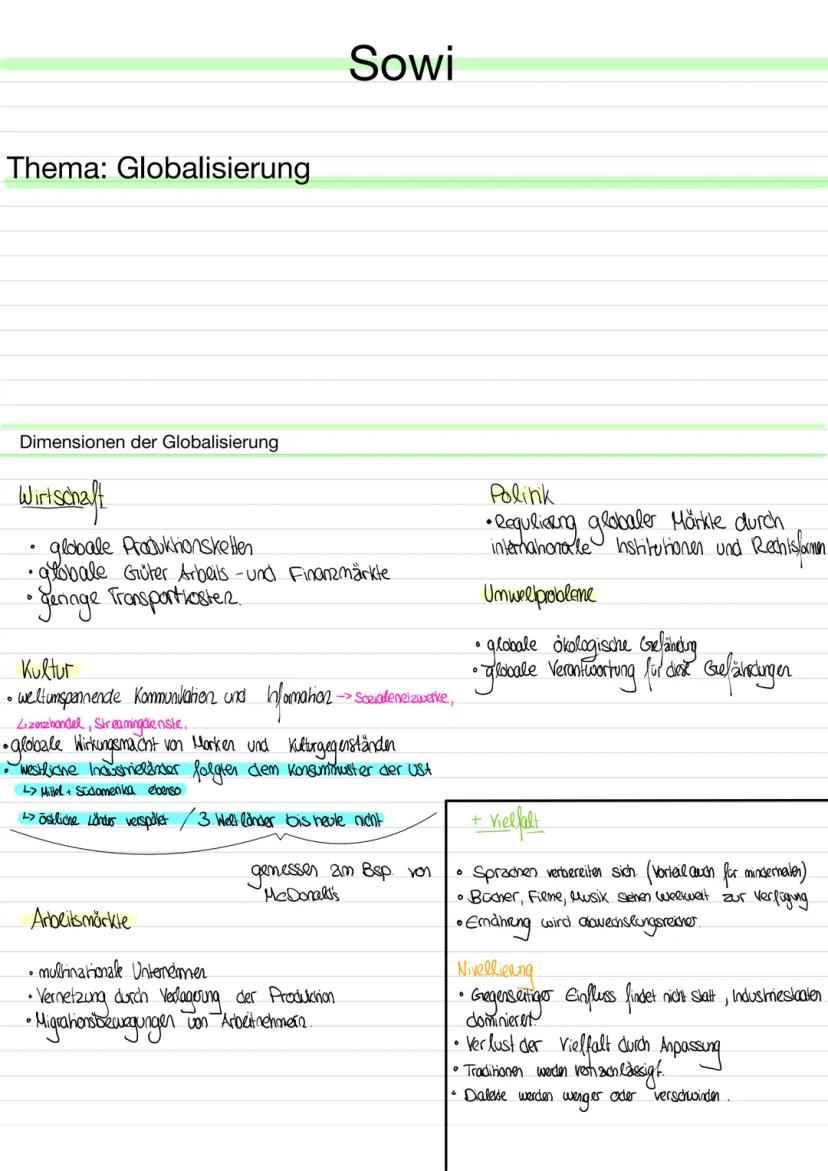 Sowi
Thema: Globalisierung
Dimensionen der Globalisierung
Wirtschaft
• globale Produktionsketten
• globale Güter Arbeits - und Finanzmärkte
• geringe Transportkosten.
Kultur
• weltumspannende Kommunikation und Information → Sozialenetzwerke,
Lizenzhandel, Streamingdienste,
• globale Wirkungsmacht von Marken und Kulturgegenständen
• westliche Industrieländer folgten dem Konsummuster der USA
↳ Mittel + Südamerika ebenso
↳ östliche Länder verspätet / 3. Welt länder bis heute nicht
gemessen am Bsp. von
McDonald's
Arbeitsmärkte
• multinationale Unternehmen
• Vernetzung durch Verlagerung der Produktion
• Migrationsbewegungen von Arbeitnehmern.
Politik
• Regulierung globaler Märkte durch
internationale Institutionen und Rechtsformen
Umweltprobleme
• globale ökologische Gefährdung
• globale Verantwortung für diese Gefährdungen
+ Vielfalt
• Sprachen verbereiten sich (Vorteil auch für minderheiten)
• Bücher, Filme, Musik stehen weltweit zur Verfügung
• Ernährung wird abwechslungsreicher.
Nivellierung
• Gegenseitiger Einfluss findet nicht statt, Industriestaaten
dominieren.
• Verlust der Vielfalt durch Anpassung
• Traditionen werden vernachlässigt.
• Dialekte werden weniger oder verschwinden.